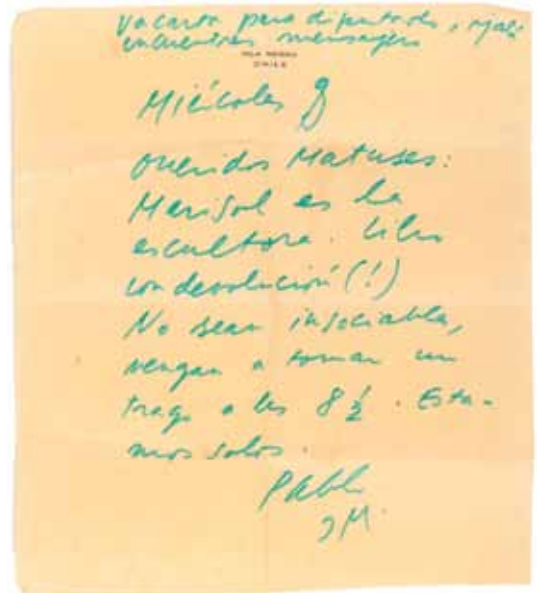 Va carta para diputado, ojalá
encuentres mensajero
ISLA NEGRA
CHILE
Miércoles 8
Queridos Matuses:
Marisol es la
escultora. Libro
con devolución (!)
No sean insociables,
vengan a tomar un
trago a las 8½. Esta-
mos solos.
Pablo
y M.